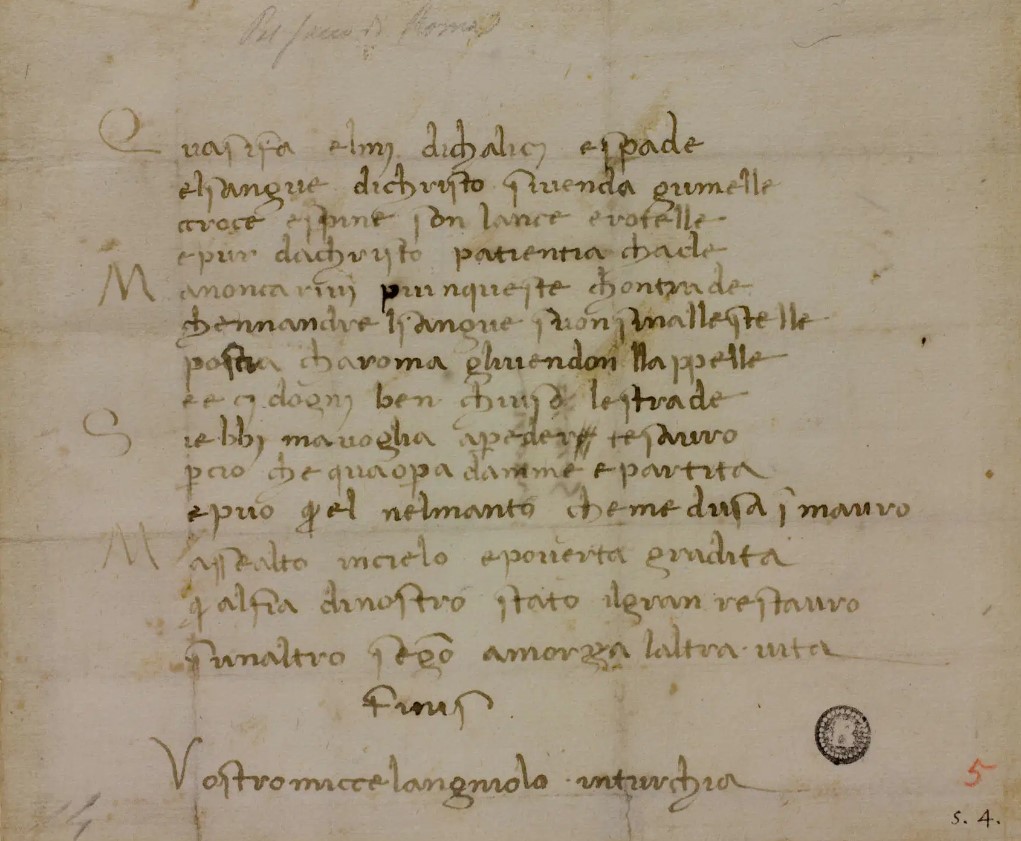 Pel sacco di Roma
Qua si fa elmi di chalici e spade
el sangue di christo si venda giumelle
croce e spine son lance e rotelle
e pur da christo patientia chade
Ma non ca rivi piu nqueste chontrade
che nnandre l sangue suon sin alle stelle
poscia cha roma gli vendon lla pelle
e eci d ogni ben chiuso le strade
S i ebbi ma voglia a peder tesauro
p cio che qua opa da mme e partita
e puo quel nel manto che medusa i mauro
Ma sse alto in cielo e poverta gradita
qual fia di nostro stato il gran restauro
s un altro segō amorza l altra vita
Finis
Vostro miccelangniolo in turchia
5
s. 4.
14